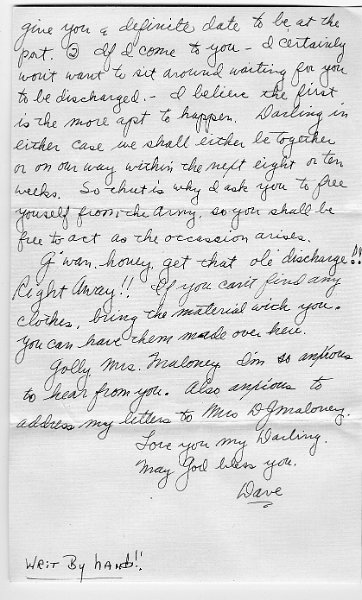 give you a definite date to be at the
port. ② If I come to you - I certainly
won't want to sit around waiting for you
to be discharged. - I believe the first
is the more apt to happen. Darling in
either case we shall either be together
or on our way within the next eight or ten
weeks. So that is why I ask you to free
yourself from the Army, so you shall be
free to act as the occassion arises.
G'wan, honey, get that ole' discharge!!
Right Away!! If you can't find any
clothes, bring the material with you.
You can have them made over here.
Golly, Mrs. Maloney, I'm so anxious
to hear from you. Also anxious to
address my letters to Mrs D J Maloney.
Love you my Darling.
May God bless you.
Dave
WRIT By hANd!!